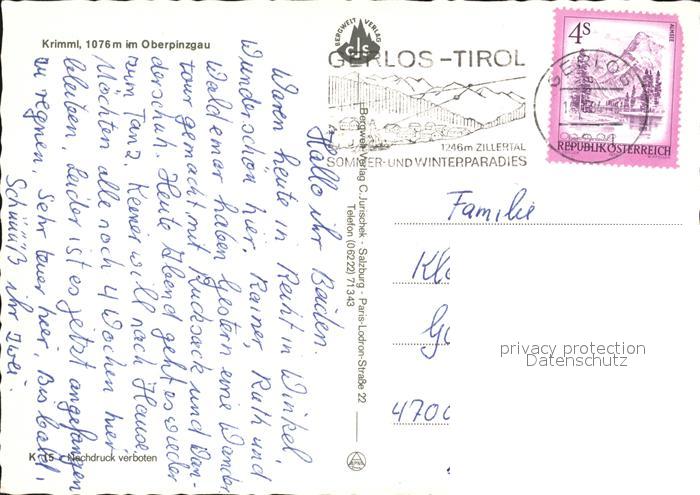 Krimml, 1076 m im Oberpinzgau
BERGWELT VERLAG
CJS
GERLOS-TIROL
1246m ZILLERTAL
SOMMER-UND WINTERPARADIES
GERLOS
4S
ALMSEE
REPUBLIK ÖSTERREICH
Hallo ihr Beiden.
Waren heute in Reith in Winkel,
Wunderschön hier, Rainer, Ruth und
Waldemar haben Gestern eine Wander
tour gemacht mit Rucksack und Wan-
derschuh. Heute Abend geht es wieder
zum Tanz, Keiner will nach Hause
Möchten alle noch 4 Wochen hier
bleiben, Leider ist es jetzt angefangen
zu regnen, Sehr teuer hier, Bis bald,
Schüüß ihr Zwei
Bergwelt-Verlag C. Jurischek, Salzburg - Paris-Lodron-Straße 22
Telefon (06222) 71343
Familie
Kl
G
4700
privacy protection
Datenschutz
K 15 – Nachdruck verboten